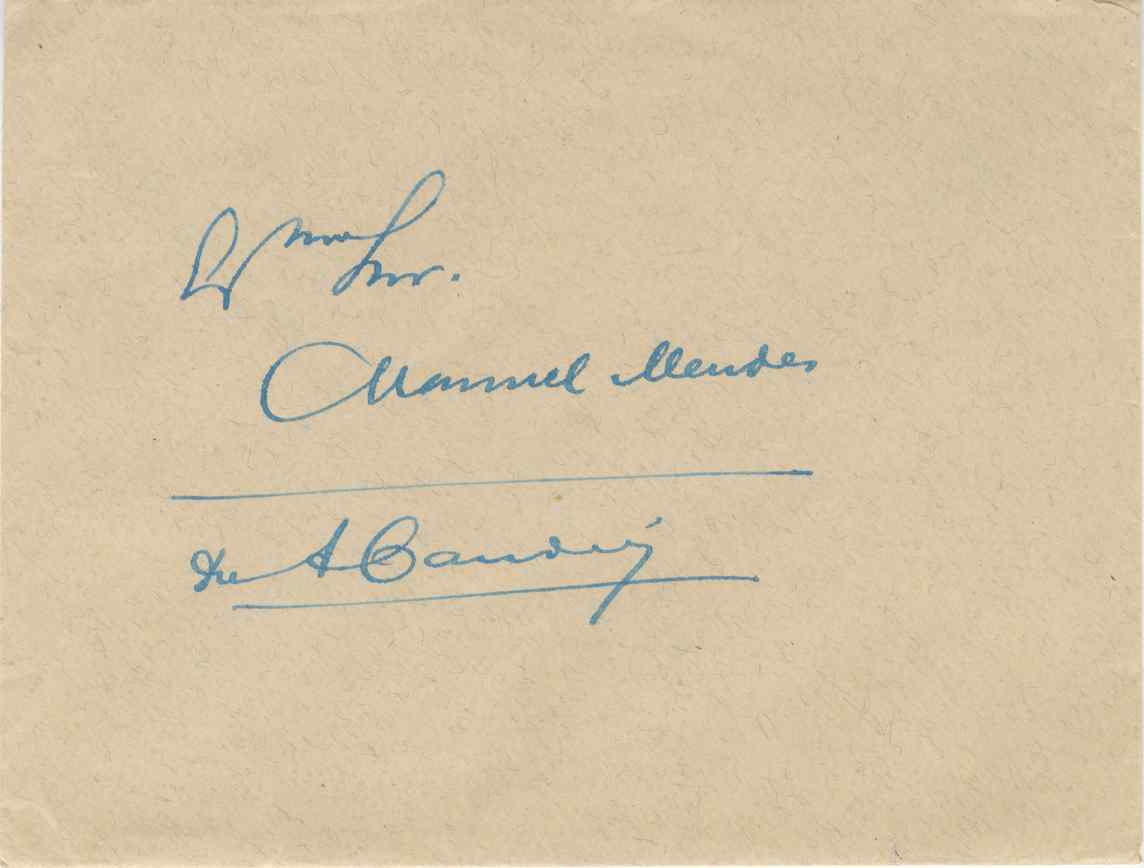 Exmo Snr.
Manuel Mendes
de A